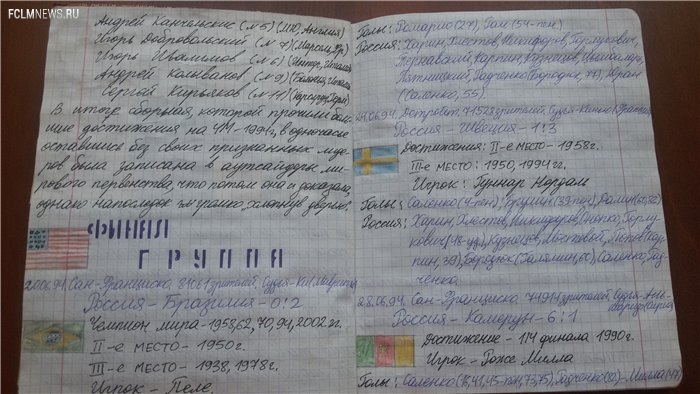 FCLMNEWS.RU
Андрей Канчельскис (м 5) (МЮ, Англия)
Игорь Добровольский (м 7) (Марсель, Фр)
Игорь Шалимов (м 6) (Интер, Италия)
Андрей Колыванов (м 9) (Болонья, Италия)
Сергей Кирьяков (м 11) (Карлсруэ, Герм)
В итоге сборная, которой прочили
достижения на ЧМ-1994г, в одночасье
оставшись без своих признанных лиде-
ров была записана в аутсайдеры ми-
рового первенства, что потом она и доказала,
однако напоследок громко хлопнув дверью!
ФИНАЛ
ГРУППА
20.06.94. Сан-Франциско, 81061 зрителей, Судья-Ки(Маврикий)
Россия-Бразилия-0:2
Чемпион мира-1958,62,70,94,2002 гг.
II-е место-1950г.
III-е место-1938,1978г.
Игрок-Пеле.
Голы: Ромарио(27), Раи(54-пен)
Россия: Харин, Хлестов, Никифоров, Горлукович,
Тернавский, Карпин, Кузнецов, Цымбаларь,
Пятницкий, Радченко(Бородюк, 77), Юран
(Саленко, 55).
24.06.94. Детройт, 71528 зрителей, Судья- (Франция)
Россия-Швеция-1:3
Достижения: II-е место-1958г.
III-е место: 1950,1994гг.
Игрок: Гуннар Нордал
Голы: Саленко(4-пен), Бролин(39-пен), Далин(60,82)
Россия: Харин, Хлестов, Никифоров, Онопко, Горлу-
кович(48-уд), Кузнецов, Мостовой, Попов(Кар-
пин, 39), Бородюк(Галямин, 50) Саленко, Рад-
ченко.
28.06.94. Сан-Франциско 74914 зрителей, Судья-
Россия-Камерун-6:1
Достижение-1/4 финала 1990г.
Игрок-Роже Милла
Голы: Саленко(16,41,45-пен,73,75), Радченко(82)-Милла(47)